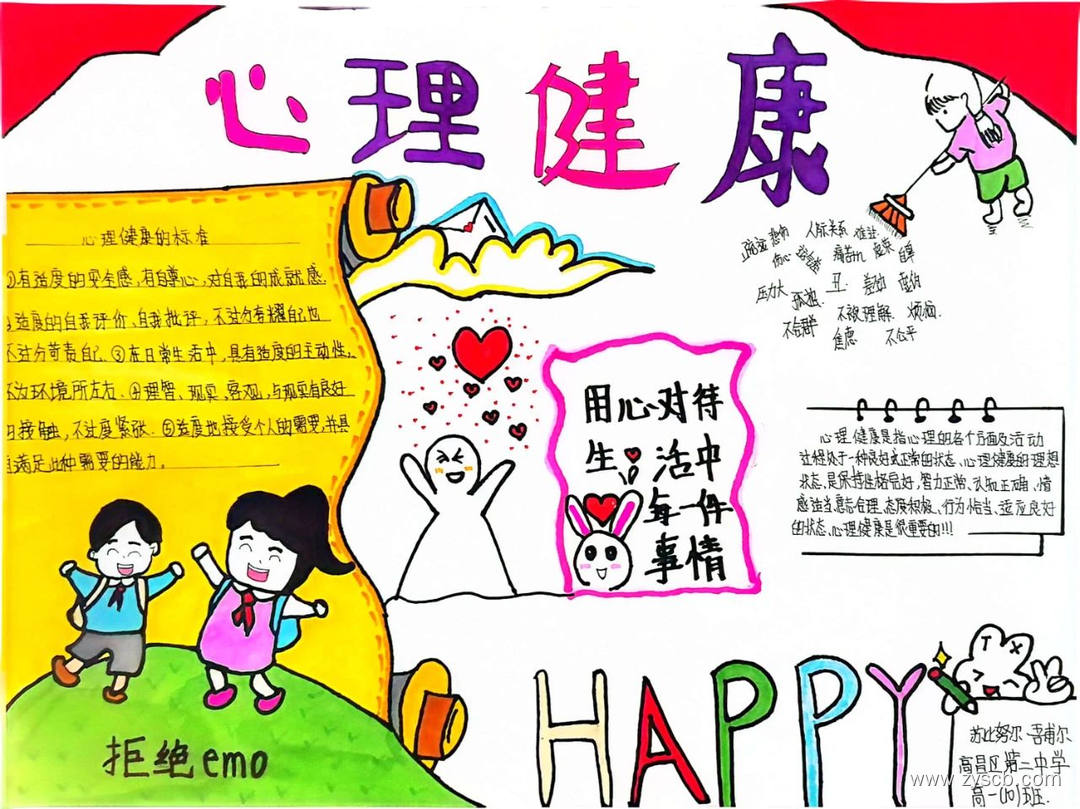 心理健康
心理健康的标准
①有适度的安全感,有自尊心,对自我的成就感.
适度的自我评价、自我批评,不过分夸耀自己也
不过分苛责自己.③在日常生活中,具有适度的主动性,
不为环境所左右.④理智、现实、客观,与现实有良好
接触,不过度紧张.⑤适度地接受个人的需要,并具
满足此种需要的能力.
悲伤 人际关系 难过
伤心 痛苦 自卑
压力大 孤独. 丑.
不合群 不被理解. 烦恼.
焦虑 不公平
用心对待
生活中
每一件
事情
心理健康是指心理的各个方面及活动
过程处于一种良好或正常的状态、心理健康的理想
状态,是保持性格完好,智力正常、认知正确、情
感适当,意志合理、态度积极、行为恰当、适应良好
的状态、心理健康是很重要的!!!
拒绝emo
HAPPY
T X
苏比努尔·吾甫尔
高昌区第二中学
高一(10)班.
www.zyscb.com